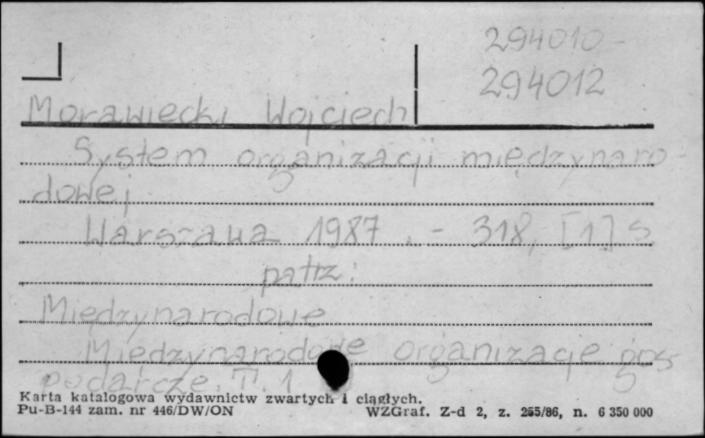 294010-
294012
Morawiecki Wojciech
System organizacji międzynaro-
dowej
Warszawa 1987 . - 318, [1] s.
patrz:
Międzynarodowe
Międzynarodowe organizacje gos
podarcze. T. 1
Karta katalogowa wydawnictw zwartych i ciągłych.
Pu-B-144 zam. nr 446/DW/ON WZGraf. Z-d 2, z. 255/86, n. 6 350 000